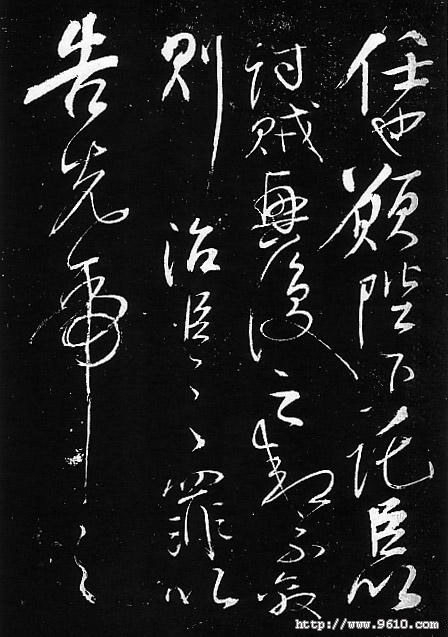 任也願陛下託臣以
討賊興復之效不效
則治臣之罪以
告先帝之
http://www.9610.com